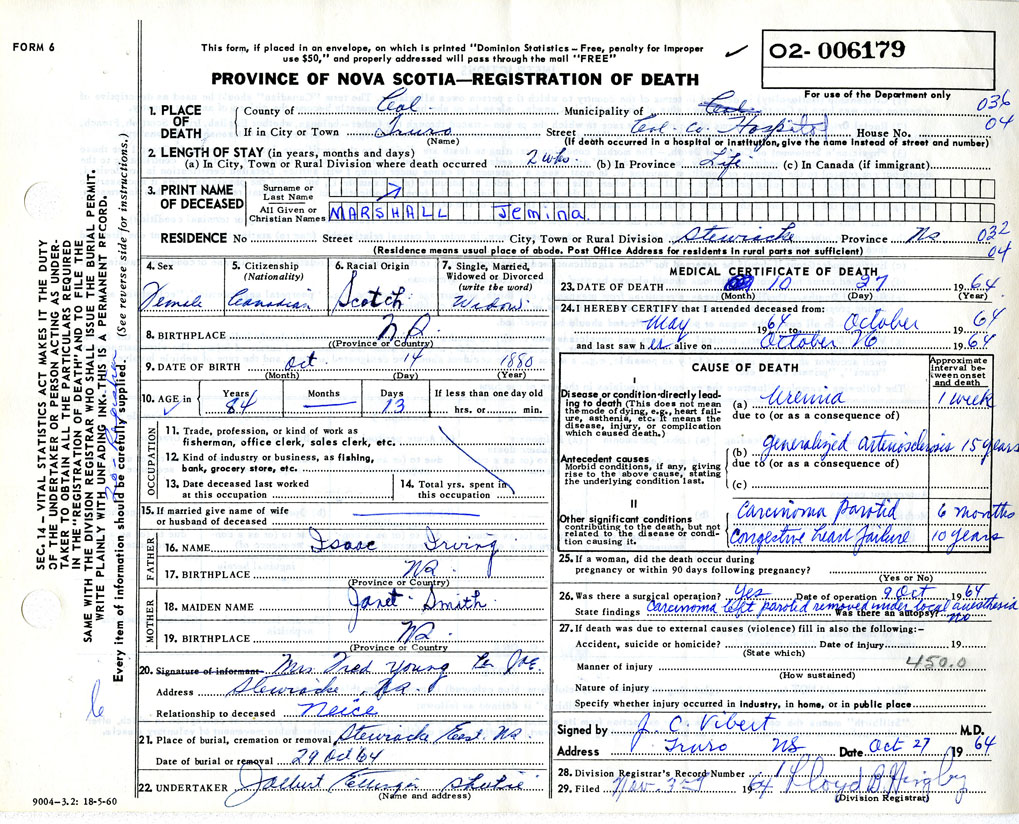 FORM 6
This form, if placed in an envelope, on which is printed "Dominion Statistics – Free, penalty for improper
use $50," and properly addressed will pass through the mail "FREE"
✓
O2- 006179
PROVINCE OF NOVA SCOTIA—REGISTRATION OF DEATH
For use of the Department only
036
04
1. PLACE OF DEATH
County of Col. Municipality of Col.
If in City or Town Truro (Name) Street Col. Co. Hospital House No.
(If death occurred in a hospital or institution, give the name instead of street and number)
2. LENGTH OF STAY (in years, months and days)
(a) In City, Town or Rural Division where death occurred 2 wks. (b) In Province Life (c) In Canada (if immigrant)
3. PRINT NAME OF DECEASED
Surname or Last Name
All Given or Christian Names MARSHALL Jemina
032
04
RESIDENCE No Street City, Town or Rural Division Stewiacke Province NS
(Residence means usual place of abode. Post Office Address for residents in rural parts not sufficient)
4. Sex Female
5. Citizenship (Nationality) Canadian
6. Racial Origin Scotch
7. Single, Married, Widowed or Divorced (write the word) Widow
8. BIRTHPLACE N.S.
(Province or Country)
9. DATE OF BIRTH Oct. 14 1880
(Month) (Day) (Year)
10. AGE in Years 84 Months — Days 13 If less than one day old hrs. or min.
OCCUPATION
11. Trade, profession, or kind of work as fisherman, office clerk, sales clerk, etc.
12. Kind of industry or business, as fishing, bank, grocery store, etc.
13. Date deceased last worked at this occupation
14. Total yrs. spent in this occupation
15. If married give name of wife or husband of deceased
FATHER
16. NAME Isaac Irving
17. BIRTHPLACE NS
(Province or Country)
MOTHER
18. MAIDEN NAME Janet Smith
19. BIRTHPLACE NS
(Province or Country)
20. Signature of informant Mrs. Fred Young
Address Stewiacke, NS.
Relationship to deceased Neice
21. Place of burial, cremation or removal Stewiacke East. NS.
Date of burial or removal 29 Oct 64
22. UNDERTAKER
(Name and address)
MEDICAL CERTIFICATE OF DEATH
23. DATE OF DEATH 10 27 1964
(Month) (Day) (Year)
24. I HEREBY CERTIFY that I attended deceased from:
May 1964 to October 1964
and last saw her alive on October 26 1964
CAUSE OF DEATH
Approximate interval between onset and death
I
Disease or condition directly leading to death (This does not mean the mode of dying, e.g., heart failure, asthenia, etc. It means the disease, injury, or complication which caused death.)
(a) Uremia 1 week
due to (or as a consequence of)
Antecedent causes
Morbid conditions, if any, giving rise to the above cause, stating the underlying condition last.
(b) generalized arteriosclerosis 15 years
due to (or as a consequence of)
(c)
II
Other significant conditions contributing to the death, but not related to the disease or condition causing it.
Carcinoma Parotid 6 months
Congestive heart failure 10 years
25. If a woman, did the death occur during
pregnancy or within 90 days following pregnancy?
(Yes or No)
26. Was there a surgical operation? Yes Date of operation 9 Oct 1964
State findings Carcinoma left parotid removed under local anesthesia Was there an autopsy? No
27. If death was due to external causes (violence) fill in also the following:–
Accident, suicide or homicide? Date of injury 19
(State which)
450.0
Manner of injury
(How sustained)
Nature of injury
Specify whether injury occurred in industry, in home, or in public place
Signed by J. C. Vibert M.D.
Address Truro NS Date Oct 27 1964
28. Division Registrar's Record Number
29. Filed Nov. 3rd 1964
(Division Registrar)
9004–3.2: 18-5-60
SEC. 14 – VITAL STATISTICS ACT MAKES IT THE DUTY
OF THE UNDERTAKER OR PERSON ACTING AS UNDER-
TAKER TO OBTAIN ALL THE PARTICULARS REQUIRED
IN THE "REGISTRATION OF DEATH" AND TO FILE THE
SAME WITH THE DIVISION REGISTRAR WHO SHALL ISSUE THE BURIAL PERMIT.
WRITE PLAINLY WITH UNFADING INK. THIS IS A PERMANENT RECORD.
Every item of information should be carefully supplied. (See reverse side for instructions.)